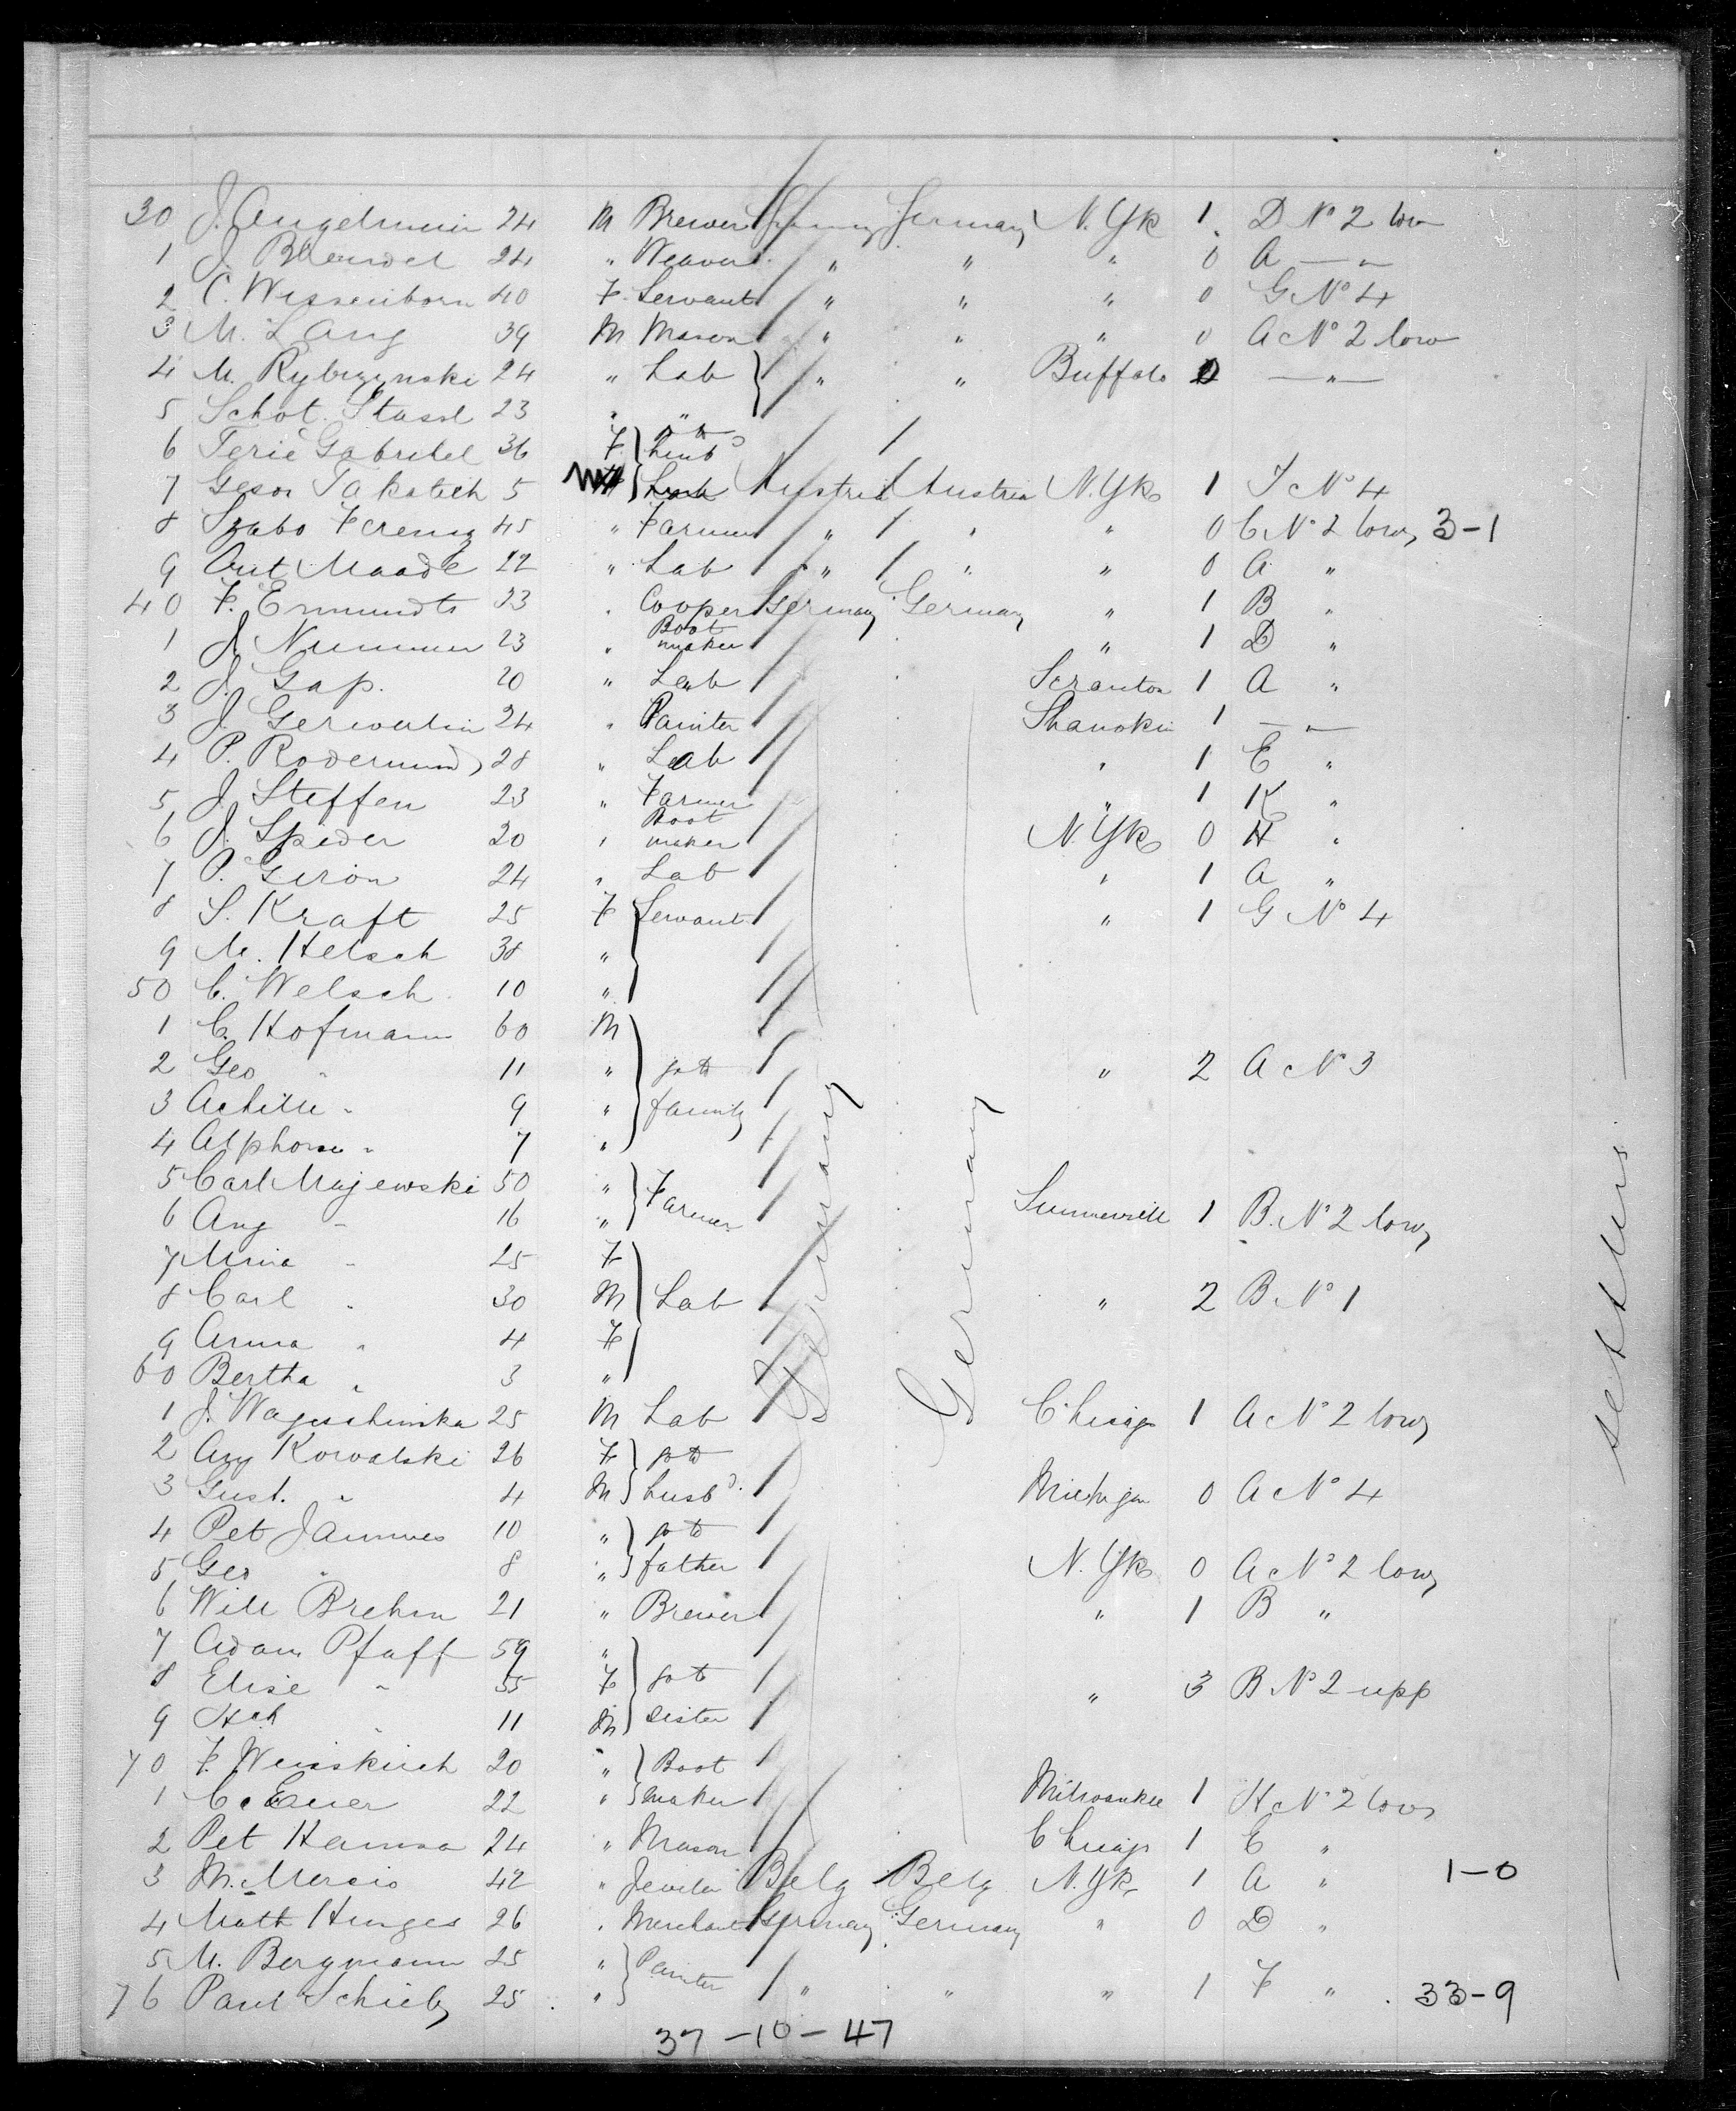 30 J. Angelmeier 24 M Brewer Germany Germany N. Yk 1 D No 2 low
1 J. Brendel 24 " Weaver " " " 0 A — " —
2 C. Wissenborn 40 F. Servant " " " 0 G No 4
3 M. Lang 39 M Mason " " " 0 A No 2 low
4 M. 24 " Lab " " Buffalo 0 — " —
5 Schot. 23 " "
6 Gabriel 36 F go to husbd
7 5 Austria Austria N. Yk 1 No 4
8 Szabo Ferenz 45 " Farmer " " " 0 C No 2 low, 3-1
9 Ant Maade 22 " Lab " " " 0 A "
40 F. Emmundts 23 " Cooper Germany Germany " 1 B "
1 J. Nummer 23 " Boot maker " 1 D "
2 J. Gap. 20 " Lab Scranton 1 A "
3 J. 24 " Painter Shamokin 1 — " —
4 P. Rodermund, 28 " Lab " 1 E "
5 J. Steffen 23 " Farmer " 1 K "
6 J. Speder 20 " Boot maker N. Yk 0 H "
7 P. Geron 24 " Lab " 1 A "
8 S. Kraft 25 F Servant " 1 G No 4
9 M. 38 "
50 C. Welsch 10 "
1 C. Hofmann 60 M
2 Geo " 11 " go to " 2 A No 3
3 Achille " 9 " family
4 Alphons " 7 "
5 Carl Majewski 50 "
6 Aug " 16 " Farmer 1 B. No 2 low,
7 Mina " 25 F
8 Carl " 30 M Lab " 2 B No 1
9 Anna " 4 F
60 Bertha " 3 "
Germany
Germany
settlers
1 J. 25 M Lab Chicago 1 A No 2 low,
2 Aug Kowalski 26 F go to
3 Gust. " 4 M husbd. Michigan 0 A No 4
4 Pet 10 " go to
5 Geo " 8 " father N. Yk 0 A No 2 low,
6 Will Brehm 21 " Brewer " 1 B "
7 Adam Pfaff 59 "
8 Elise " 55 F go to " 3 B No 2 upp
9 Hch " 11 M sister
70 F. Weisskirch 20 " Boot
1 C. 22 " maker Milwaukee 1 H No 2 low
2 Pet Hamsa 24 " Mason Chicago 1 E "
3 M. Mersis 42 " Jeweler Belg Belg N. Yk 1 A " 1-0
4 Math Hinges 26 " Merchant Germany Germany " 0 D "
5 M. Bergmann 25 " Painter
76 Paul 25 " " " " 1 F " 33-9
37-10-47